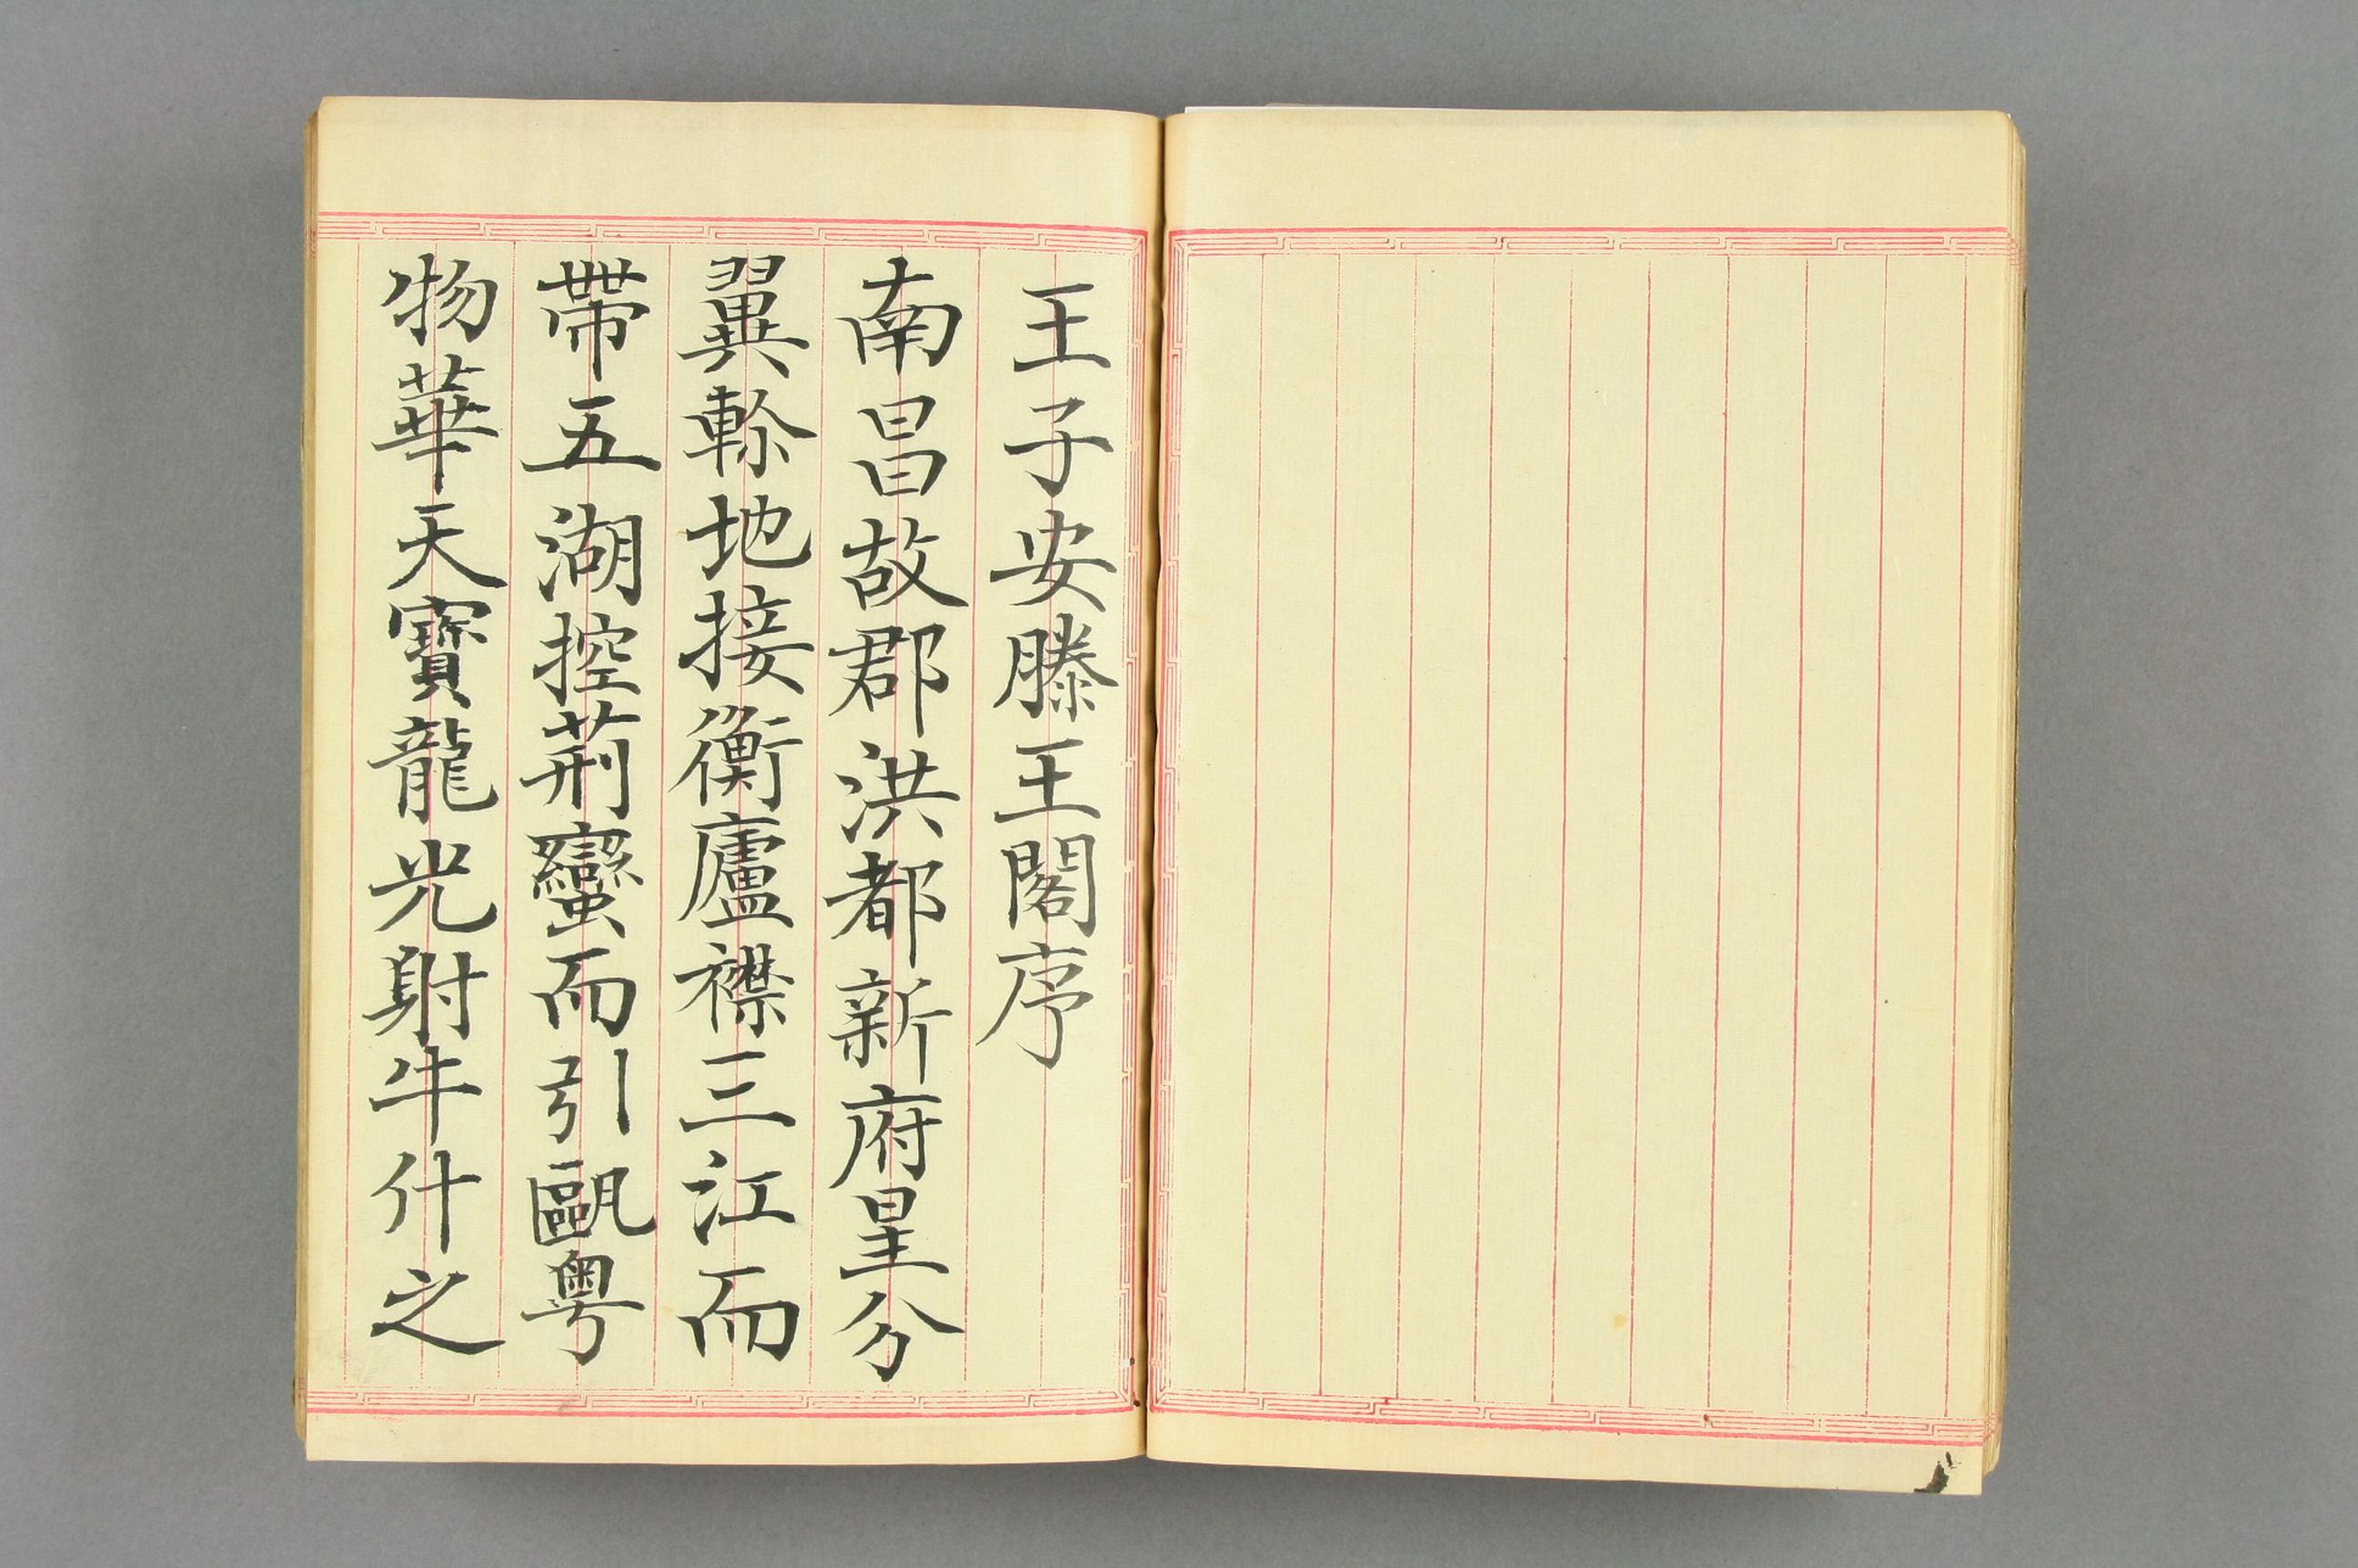 王子安滕王閣序
南昌故郡洪都新府星分
翼軫地接衡廬襟三江而
帶五湖控荊蠻而引甌粵
物華天寶龍光射牛什之